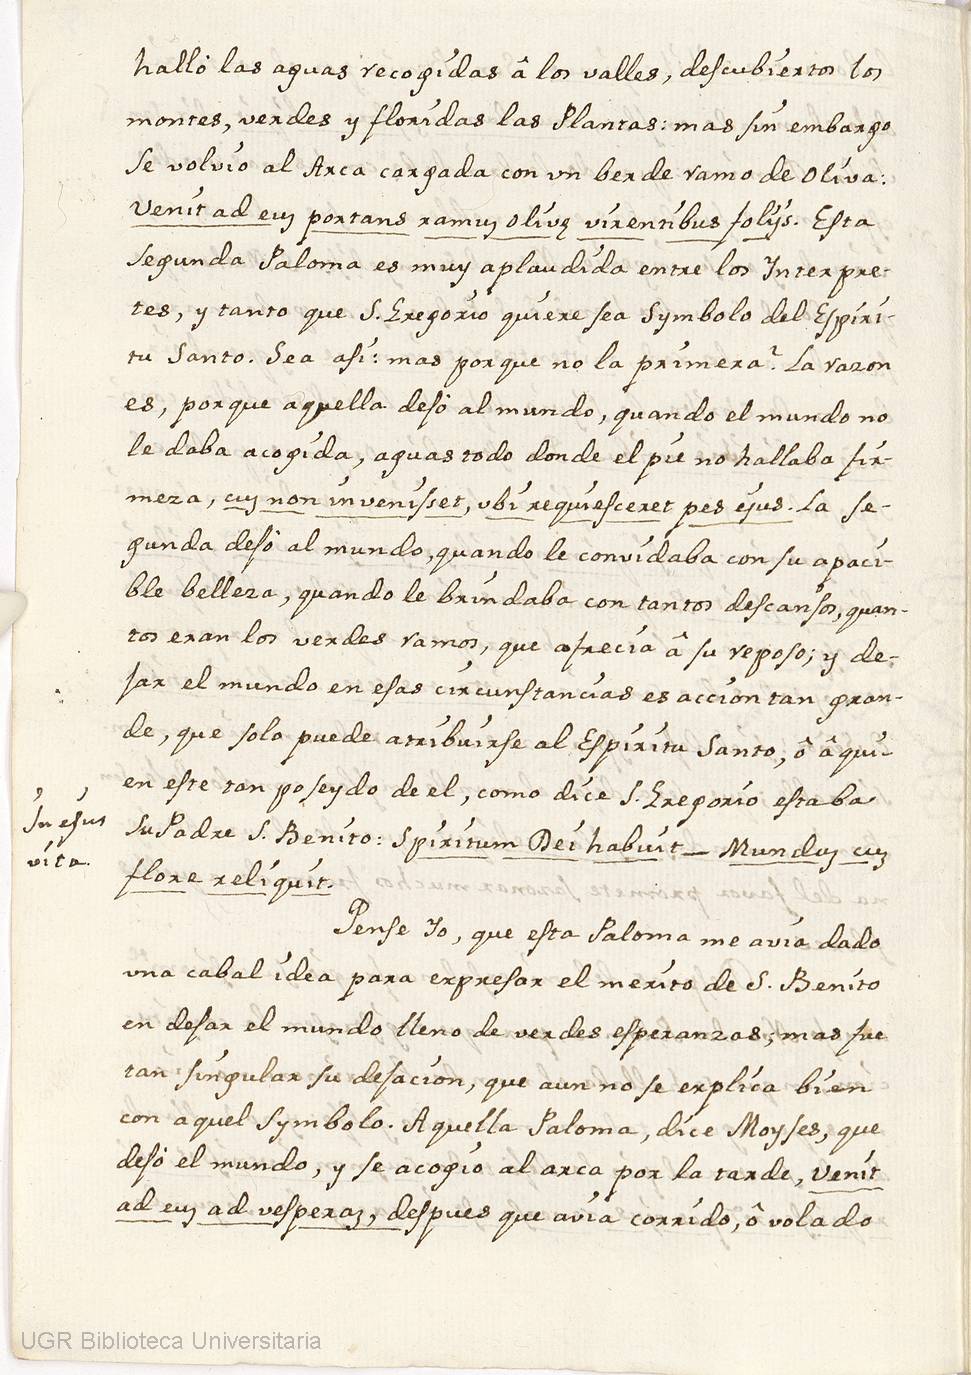 halló las aguas recogidas â los valles, descubiertos los
montes, verdes y floridas las Plantas: mas sin embargo
se volvio al Arca cargada con vn berde ramo de Oliva:
Venit ad euȝ portans ramuȝ olivę virentibus folijs. Esta
segunda Paloma es muy aplaudida entre los Interpre-
tes, y tanto que S. Gregorio quiere sea Symbolo del Espiri-
tu Santo. Sea asi: mas porque no la primera? La razon
es, porque aquella desó al mundo, quando el mundo no
le daba acogida, aguas todo donde el pie no hallaba fir-
meza, cuȝ non invenisset, vbi requiesceret pes ejus. La se-
gunda desó al mundo, quando le convidaba con su apaci-
ble belleza, quando le brindaba con tantos descansos, quan-
tos eran los verdes ramos, que ofrecia â su reposo; y de-
sar el mundo en esas circunstancias es accion tan gran-
de, que solo puede atribuirse al Espiritu Santo, ô â qui-
en este tan poseydo de el, como dice S. Gregorio estaba
In ejus
vita.
su Padre S. Benito: Spiritum Dei habuit — Munduȝ cuȝ
flore reliquit.
Pense Yo, que esta Paloma me avia dado
vna cabal idea para expresar el merito de S. Benito
en desar el mundo lleno de verdes esperanzas; mas fue
tan singular su desacion, que aun no se explica bien
con aquel Symbolo. Aquella Paloma, dice Moyses, que
desó el mundo, y se acogio al arca por la tarde, Venit
ad euȝ ad vesperaȝ, despues que avia corrido, ô volado
UGR Biblioteca Universitaria